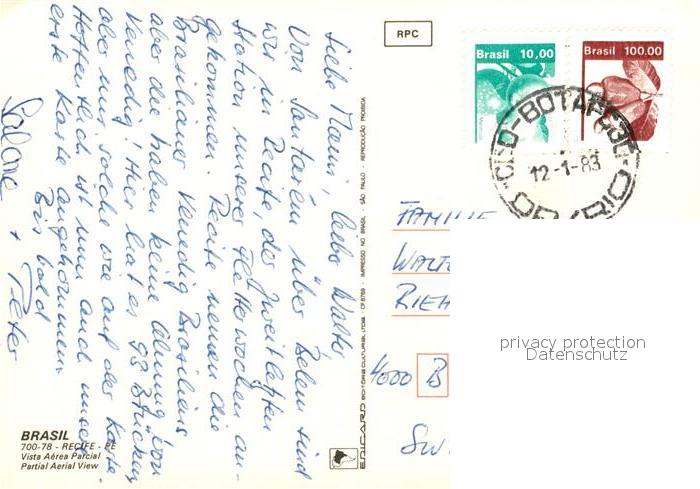 RPC
Brasil 10,00
Brasil 100.00
12-1-83
Liebe Mami, lieber Walter
Von Santarém über Belem sind
wir in Recife, der zweitletzten
Station unserer Flitterwochen an-
gekommen. Recife nennen die
Brasilianer Venedig Brasiliens
aber die haben keine Ahnung von
Venedig! Hier hat es 93 Brücken
aber nur solche wie auf der Karte.
Hoffentlich ist nun auch unsere
erste Karte angekommen.
Bis bald
+ Peter
EDICARD EDITORA CULTURAL LTDA. IMPRESSO NO BRASIL SÃO PAULO - REPRODUÇÃO PROIBIDA
FAMILIE
WALT
RIEH
4000 B
SW
privacy protection
Datenschutz
BRASIL
700-78 - RECIFE - PE
Vista Aérea Parcial
Partial Aerial View